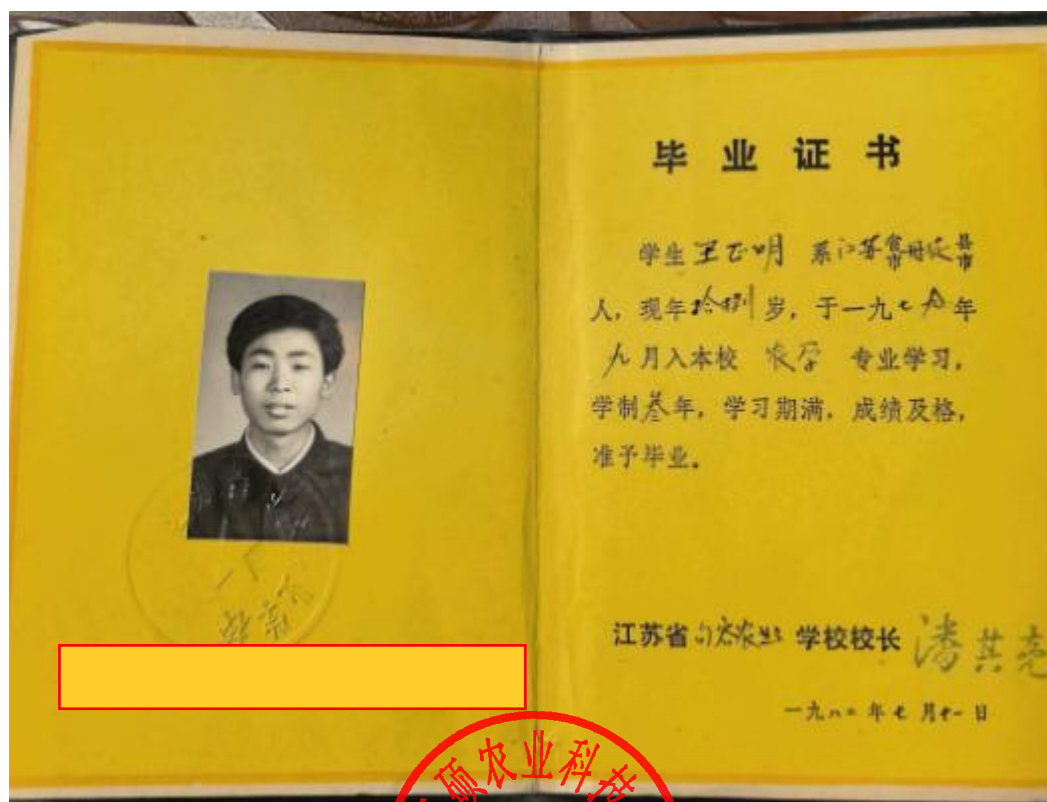 毕业证书
学生王正明 系江苏省市丹徒县市
人，现年拾捌岁，于一九七九年
九月入本校 农学 专业学习，
学制叁年，学习期满，成绩及格，
准予毕业。
江苏省句容农业学校校长 潘其亮
一九八二年七月 日
硕农业科技